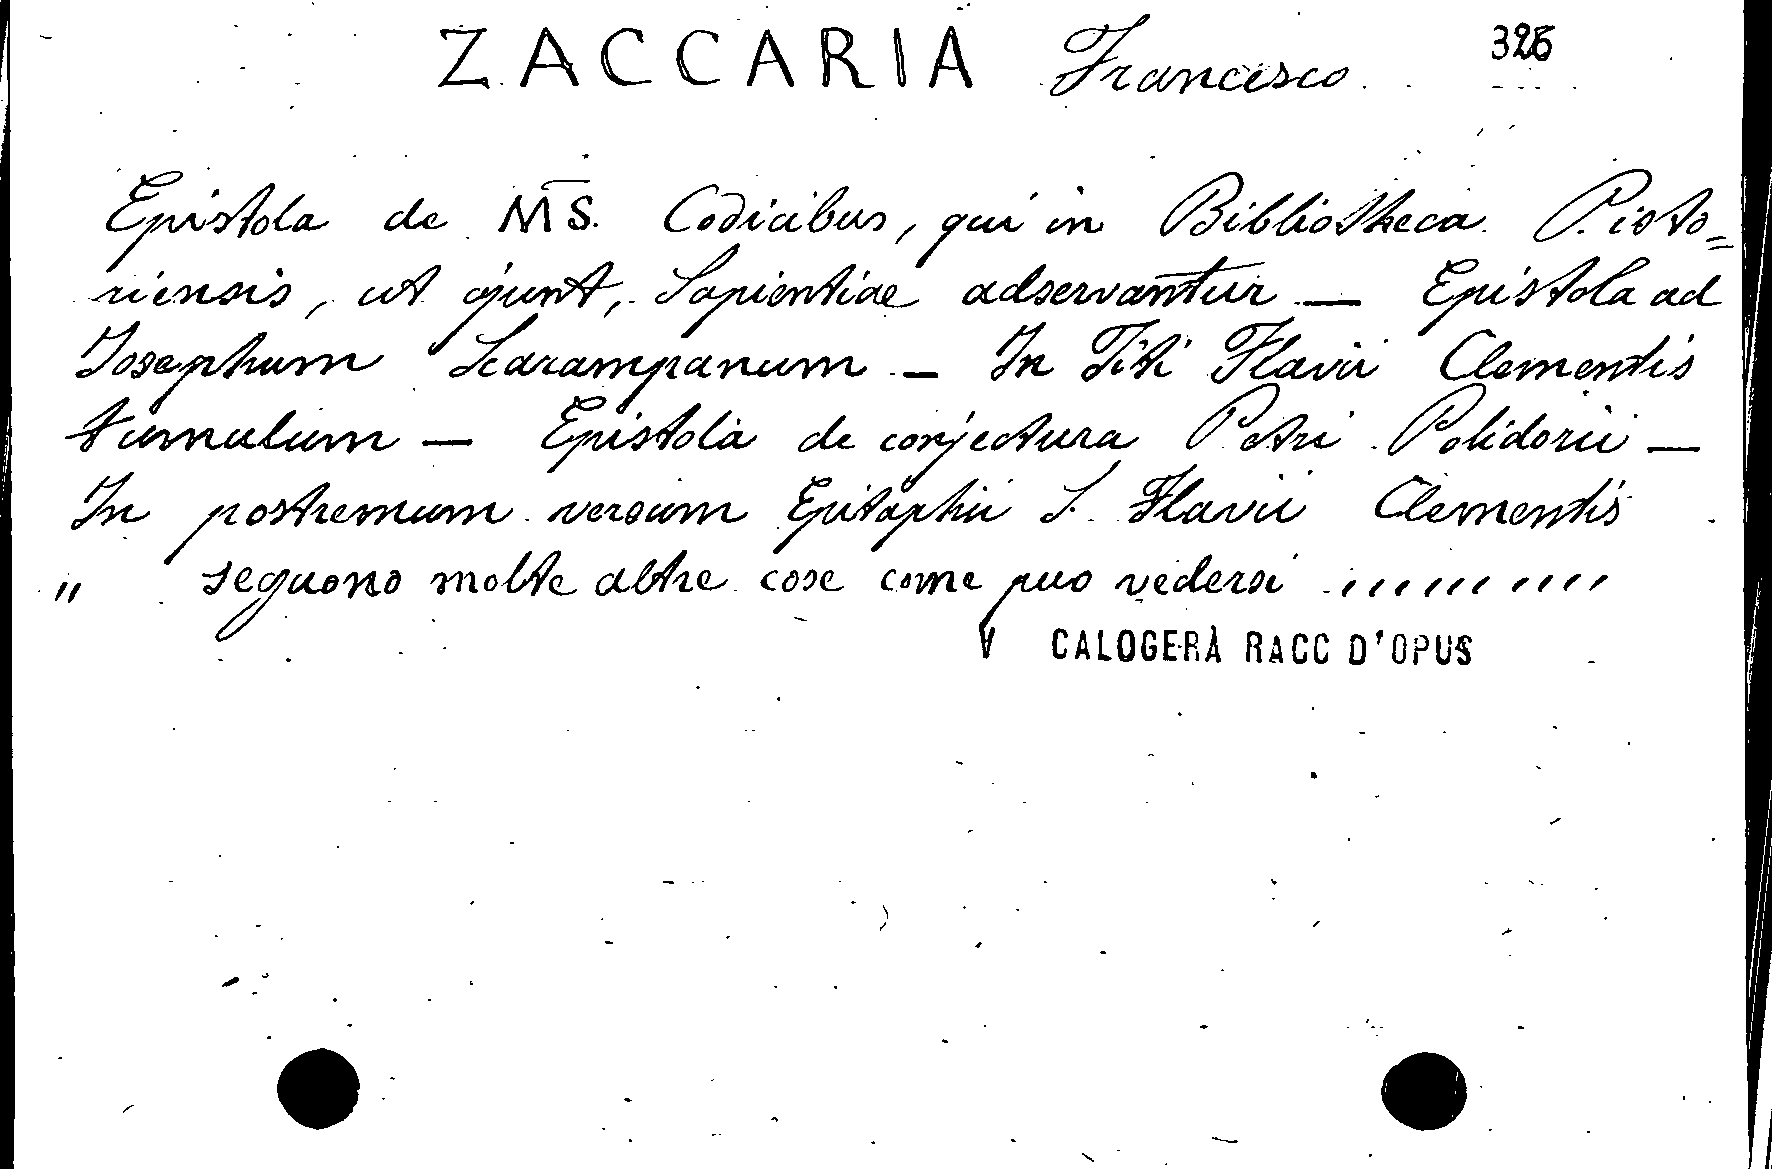 ZACCARIA Francesco 326
Epistola de MS. Codicibus, qui in Bibliotheca Pisto=
riensis, ut ajunt, Sapientiae adservantur — Epistola ad
Josephum Scarampanum — In Titi Flavii Clementis
tumulum — Epistola de conjectura Petri Polidorii —
In postremum versum Epitaphii S. Flavii Clementis
" seguono molte altre cose come può vedersi .........
V CALOGERÀ RACC D'OPUS